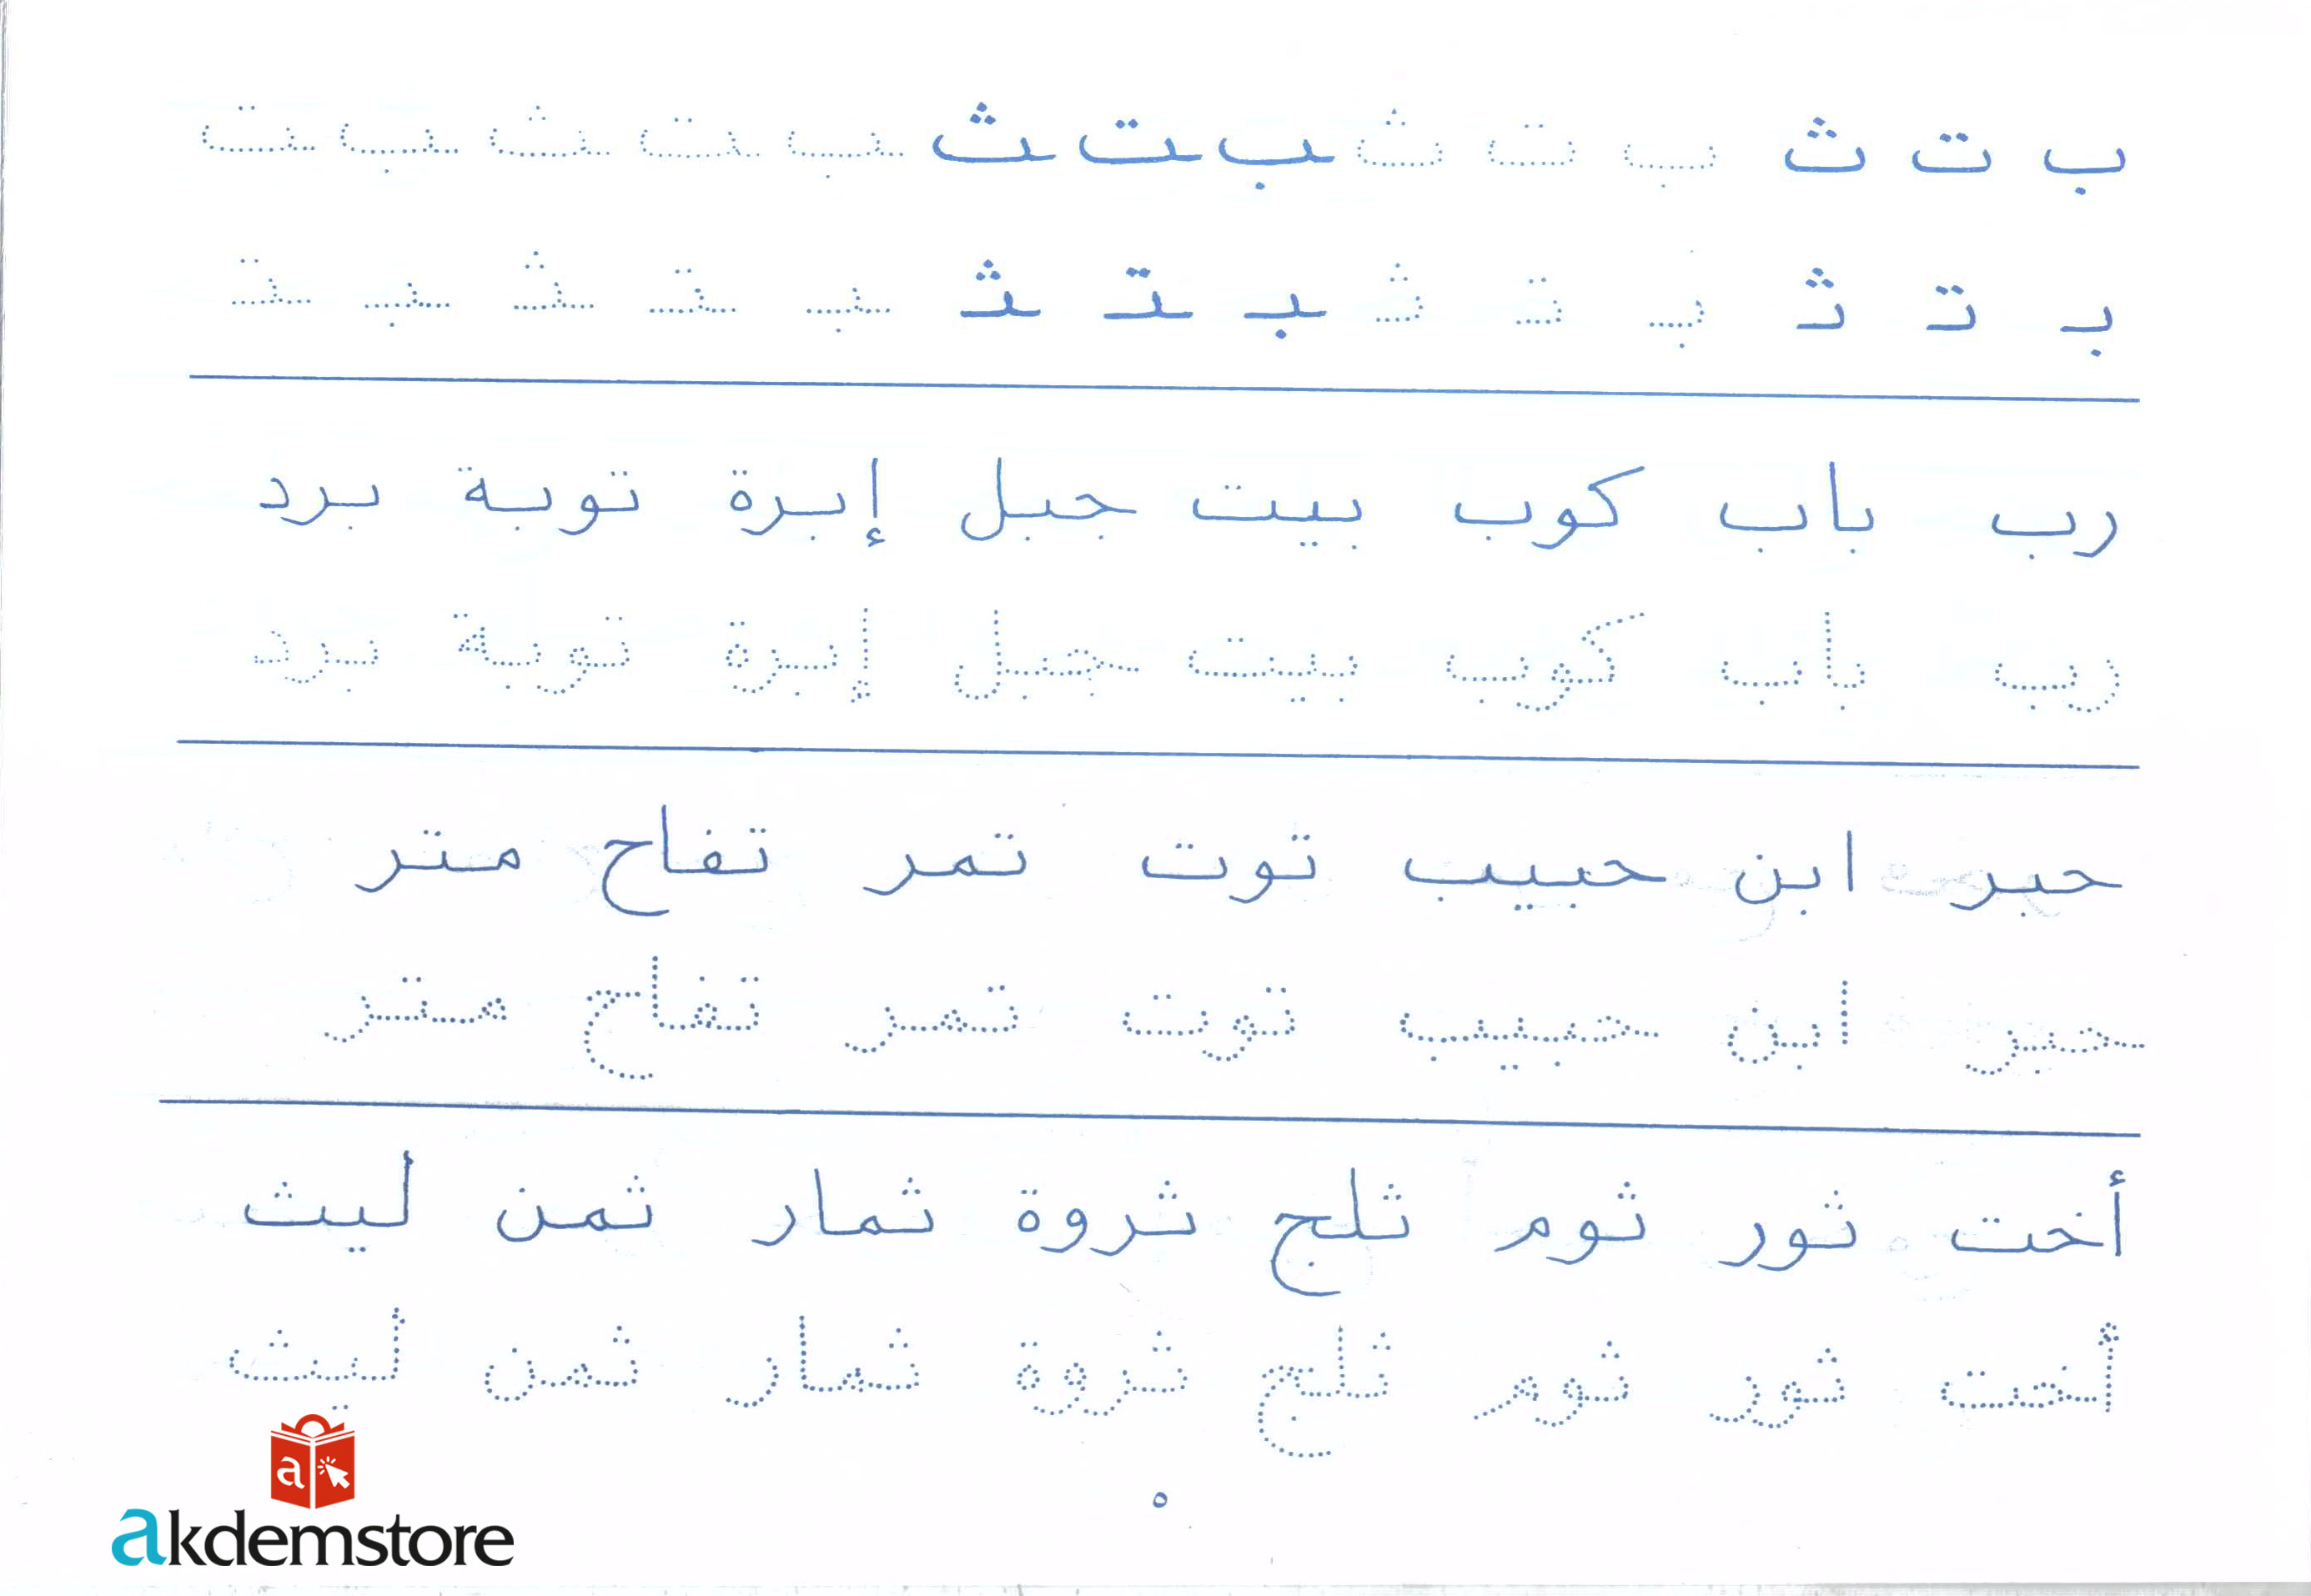 ب ت ث ب ت ث ـب ـت ـث ـب ـت ـث ـب ـت
بـ تـ ثـ بـ تـ ثـ ـبـ ـتـ ـثـ ـبـ ـتـ ـثـ ـبـ ـتـ
رب باب كوب بيت جبل إبرة توبة برد
رب باب كوب بيت جبل إبرة توبة برد
حبر ابن حبيب توت تمر تفاح متر
حبر ابن حبيب توت تمر تفاح متر
أخت ثور ثوم ثلج ثروة ثمار ثمن ليث
أخت ثور ثوم ثلج ثروة ثمار ثمن ليث
٥
akdemstore